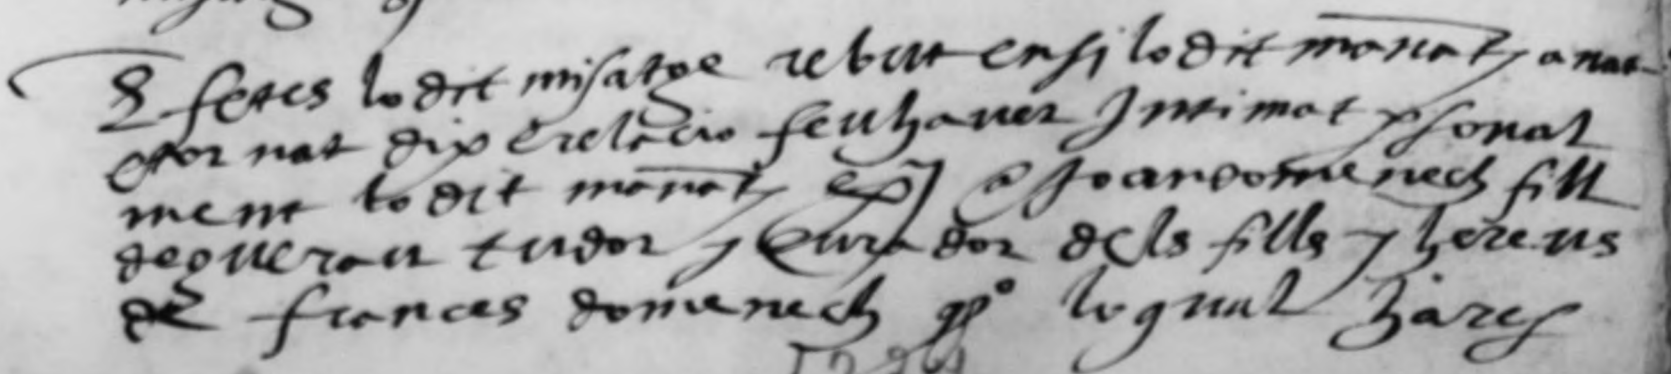 E fetes lo dit misatge rebut ensi lo dit manat, anat
e tornat dix e relacio feu haver intimat psonal
ment lo dit manat, a Joan domenech fill
de gueran tudor y curador dels fills y hereus
de frances domenech qº lo qual